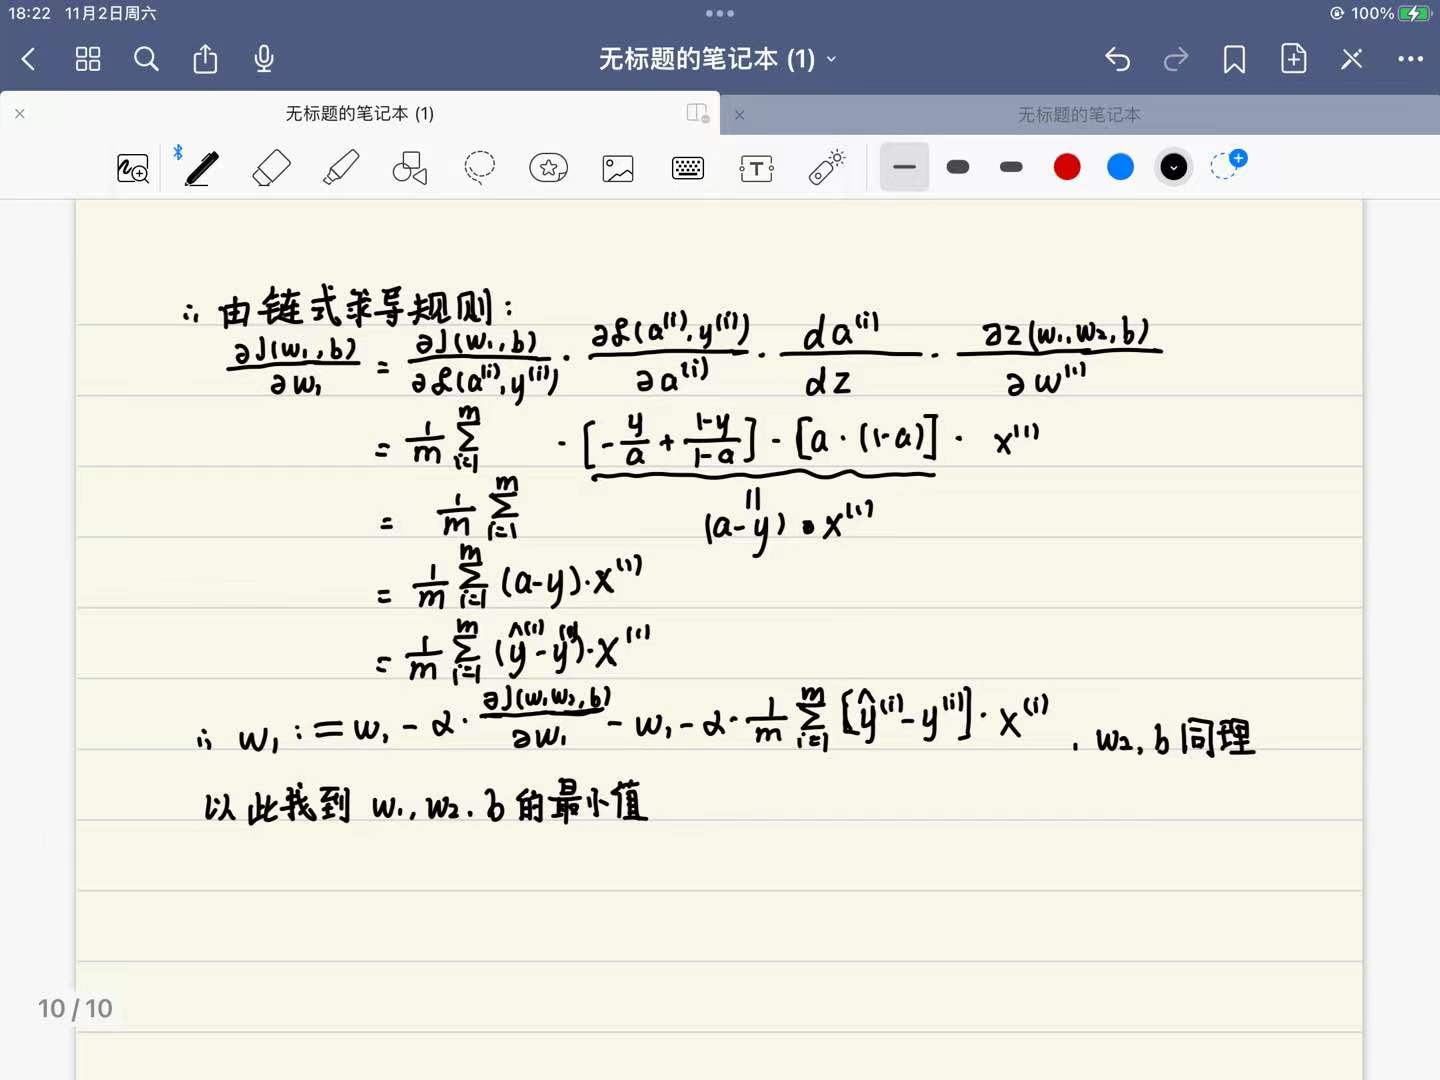 18:22 11月2日周六
100%
无标题的笔记本 (1)
无标题的笔记本 (1)
无标题的笔记本
∴ 由链式求导规则:
∂J(w₁,b)/∂w₁ = ∂J(w₁,b)/∂ℒ(a⁽ⁱ⁾,y⁽ⁱ⁾) · ∂ℒ(a⁽ⁱ⁾,y⁽ⁱ⁾)/∂a⁽ⁱ⁾ · da⁽ⁱ⁾/dz · ∂z(w₁,w₂,b)/∂w⁽¹⁾
= 1/m Σᵢ₌₁ᵐ · [-y/a + (1-y)/(1-a)] · [a·(1-a)] · x⁽¹⁾
= 1/m Σᵢ₌₁ᵐ (a-y)·x⁽¹⁾
= 1/m Σᵢ₌₁ᵐ (a-y)·x⁽¹⁾
= 1/m Σᵢ₌₁ᵐ (ŷ⁽ⁱ⁾-y⁽ⁱ⁾)·x⁽ⁱ⁾
∴ w₁ := w₁ - α·∂J(w₁,w₂,b)/∂w₁ - w₁ - α·1/m Σᵢ₌₁ᵐ [ŷ⁽ⁱ⁾-y⁽ⁱ⁾]·x⁽ⁱ⁾ . w₂,b同理
以此找到 w₁,w₂.b的最小值
10 / 10